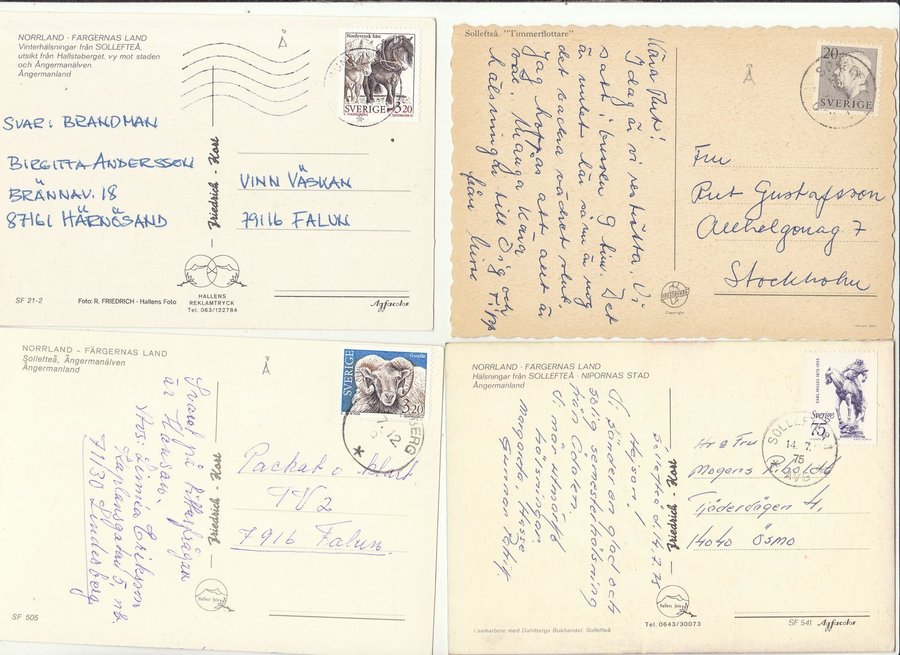 NORRLAND - FÄRGERNAS LAND
Vinterhälsningar från SOLLEFTEÅ,
utsikt från Hallstaberget, vy mot staden
och Ångermanälven
Ångermanland
Nordsvensk häst
SVERIGE 3.20
SVAR: BRANDMAN
BIRGITTA ANDERSSON
BRÄNNAV. 18
87161 HÄRNÖSAND
Friedrich - Kort
VINN VÄSKAN
79116 FALUN
HALLENS
REKLAMTRYCK
Tel. 063/122784
SF 21-2
Foto: R. FRIEDRICH - Hallens Foto
Agfacolor
Sollefteå. "Timmerflottare"
20
SVERIGE
Kära Rut!
Idag är vi reströtta. Vi
satt i bussen 9 tim. Det
är mulet här så nu är nog
det vackra vädret slut.
Jag hoppas att allt är
väl. Många kära
hälsningar till Dig och
från
Fru
Rut Gustafsson
Allhelgonag 7
Stockholm
Copyright
NORRLAND - FÄRGERNAS LAND
Sollefteå, Ångermanälven
Ångermanland
SVERIGE
Gutefår
3.20
BERG
Svaret på Litterfrågan
är Hansan.
Hos: Linnéa Eriksson
71130 Lindesberg
Friedrich - Kort
Packat o klart
TV2
7916 Falun.
Hallens foto
SF 505
NORRLAND - FÄRGERNAS LAND
Hälsningar från SOLLEFTEÅ - NIPORNAS STAD
Ångermanland
CARL MILLES 1875-1955
Sverige
75
SOLLEFTEÅ 1
14.7.
75
Sollefteå d. 14.7.75
Hejsan!
Vi sänder en glad och
solig semesterhälsning
från Ådalen.
Vi mår utmärkt
hälsningar
Margareta Hasse
Gunnar
Friedrich - Kort
Hr & Fru
Mogens Riboldt
Tjädervägen 4,
14040 ÖSMO
Hallens foto
Tel. 0643/30073
SF 541
Agfacolor
I samarbete med Dahlbergs Bokhandel, Sollefteå